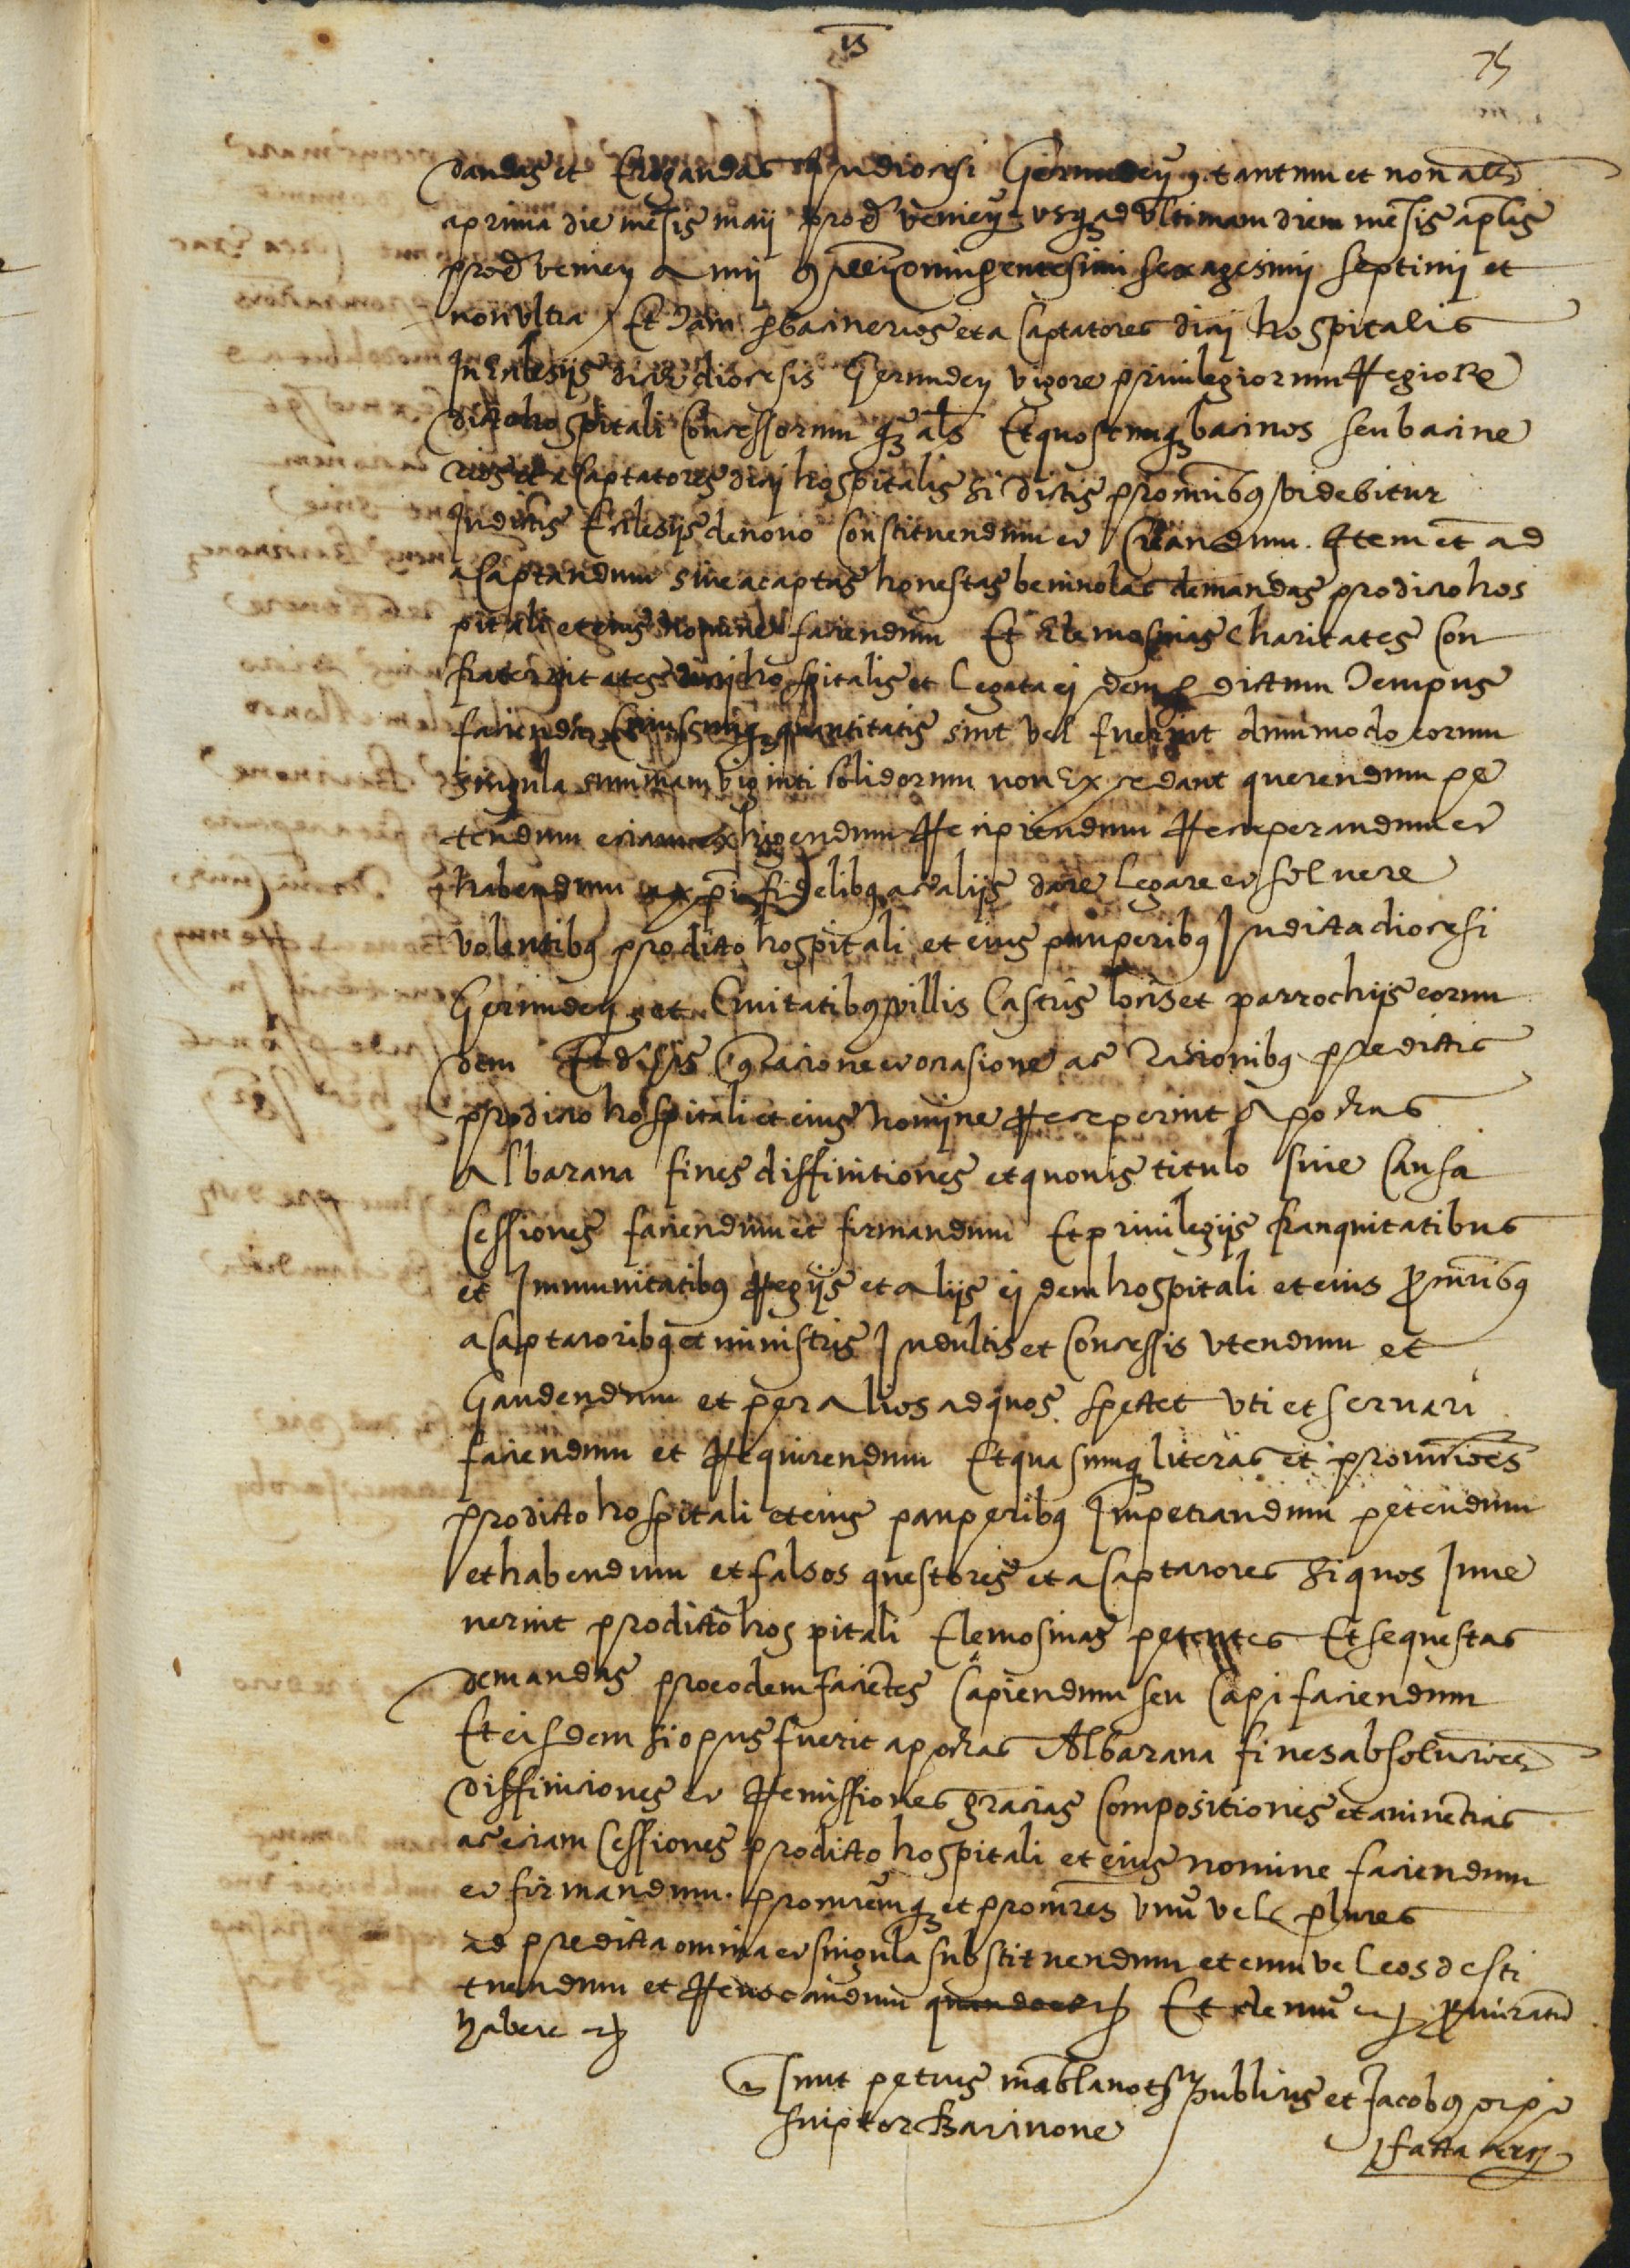 75
dandas et Erogandas Indiocesi Gerunden tantum et non als
aprima die mesis maij prox venien usq ad vltimam diem mesis aplis
prox venien Anni quingentesimi sexagesimij septimij et
non vltra Et Jam bacinerios et a captatores dicij hospitalis
In Eclesijs dicte diocesis Gerunden vigore priuilegiorum Regiore
dicto hospitali Concessorum q3 als Et quoscumq3 bacinos seu bacine
rios et a captatores dicij hospitalis si dictis procuribus videbitur
Indictis Eclesijs denouo Constituendum et Creandum. Item et ad
a Captandum siue acaptas honestas beniuolas demandas prodicto hos
pitali et eius nomine faciendum Et Elemosinas Charitates Con
fraternitates dicij hospitalis et Legata ej dem p dictum Tempus
faciende Cuiuscumq3 quantitatis sint vel fuerint dummodo eorum
singula summam viginti solidorum non Ex cedant querendum pe
tendum eciam exhigendum Recipiendum Recuperandum et
habendum ax pi fidelibus ac alijs dare legare et soluere
volentibus prodicto hospitali et eius pauperibus Indicta diocesi
Gerunden et Ciuitatibus villis Castris locis et parrochijs eorum
dem Et dissis racione et ocasione ac racionibus predictis
prodicto hospitali et eius nomine Receperint Apochas
Albarana fines diffinitiones et quouis titulo siue Causa
Cessiones faciendum et firmandum Et priuilegijs franquitatibus
et Immunitatibus Regijs et alijs ej dem hospitali et eius promribus
a Captatoribus et ministris Indultis et Concessis vtendum et
Gaudendum et per Alios ad quos spectet vti et seruari
faciendum et Requirendum Et quascumq3 literas et prouisiones
prodicto hospitali et eius pauperibus Impetrandum petendum
et habendum et falsos questores et a Captatores si quos Inue
nerint prodicto hospitali Elemosinas petentes Et sequestas
demandas pro eodem facientes Capiendum seu Capi faciendum
Et eisdem si opus fuerit apochas Albarana fines absoluciones
diffiniciones et Remissiones gracias Compositiones et auinencias
ac eciam Cessiones prodicto hospitali et eius nomine faciendum
et firmandum. procuremq3 et procures vnum vel plures
ad predicta omnia et singula substituendum et eum vel eos desti
tuendum et Reuocandum Et demu
habere
sunt petrus mablanot publius et Jacobus
scriptor Barinone
facta